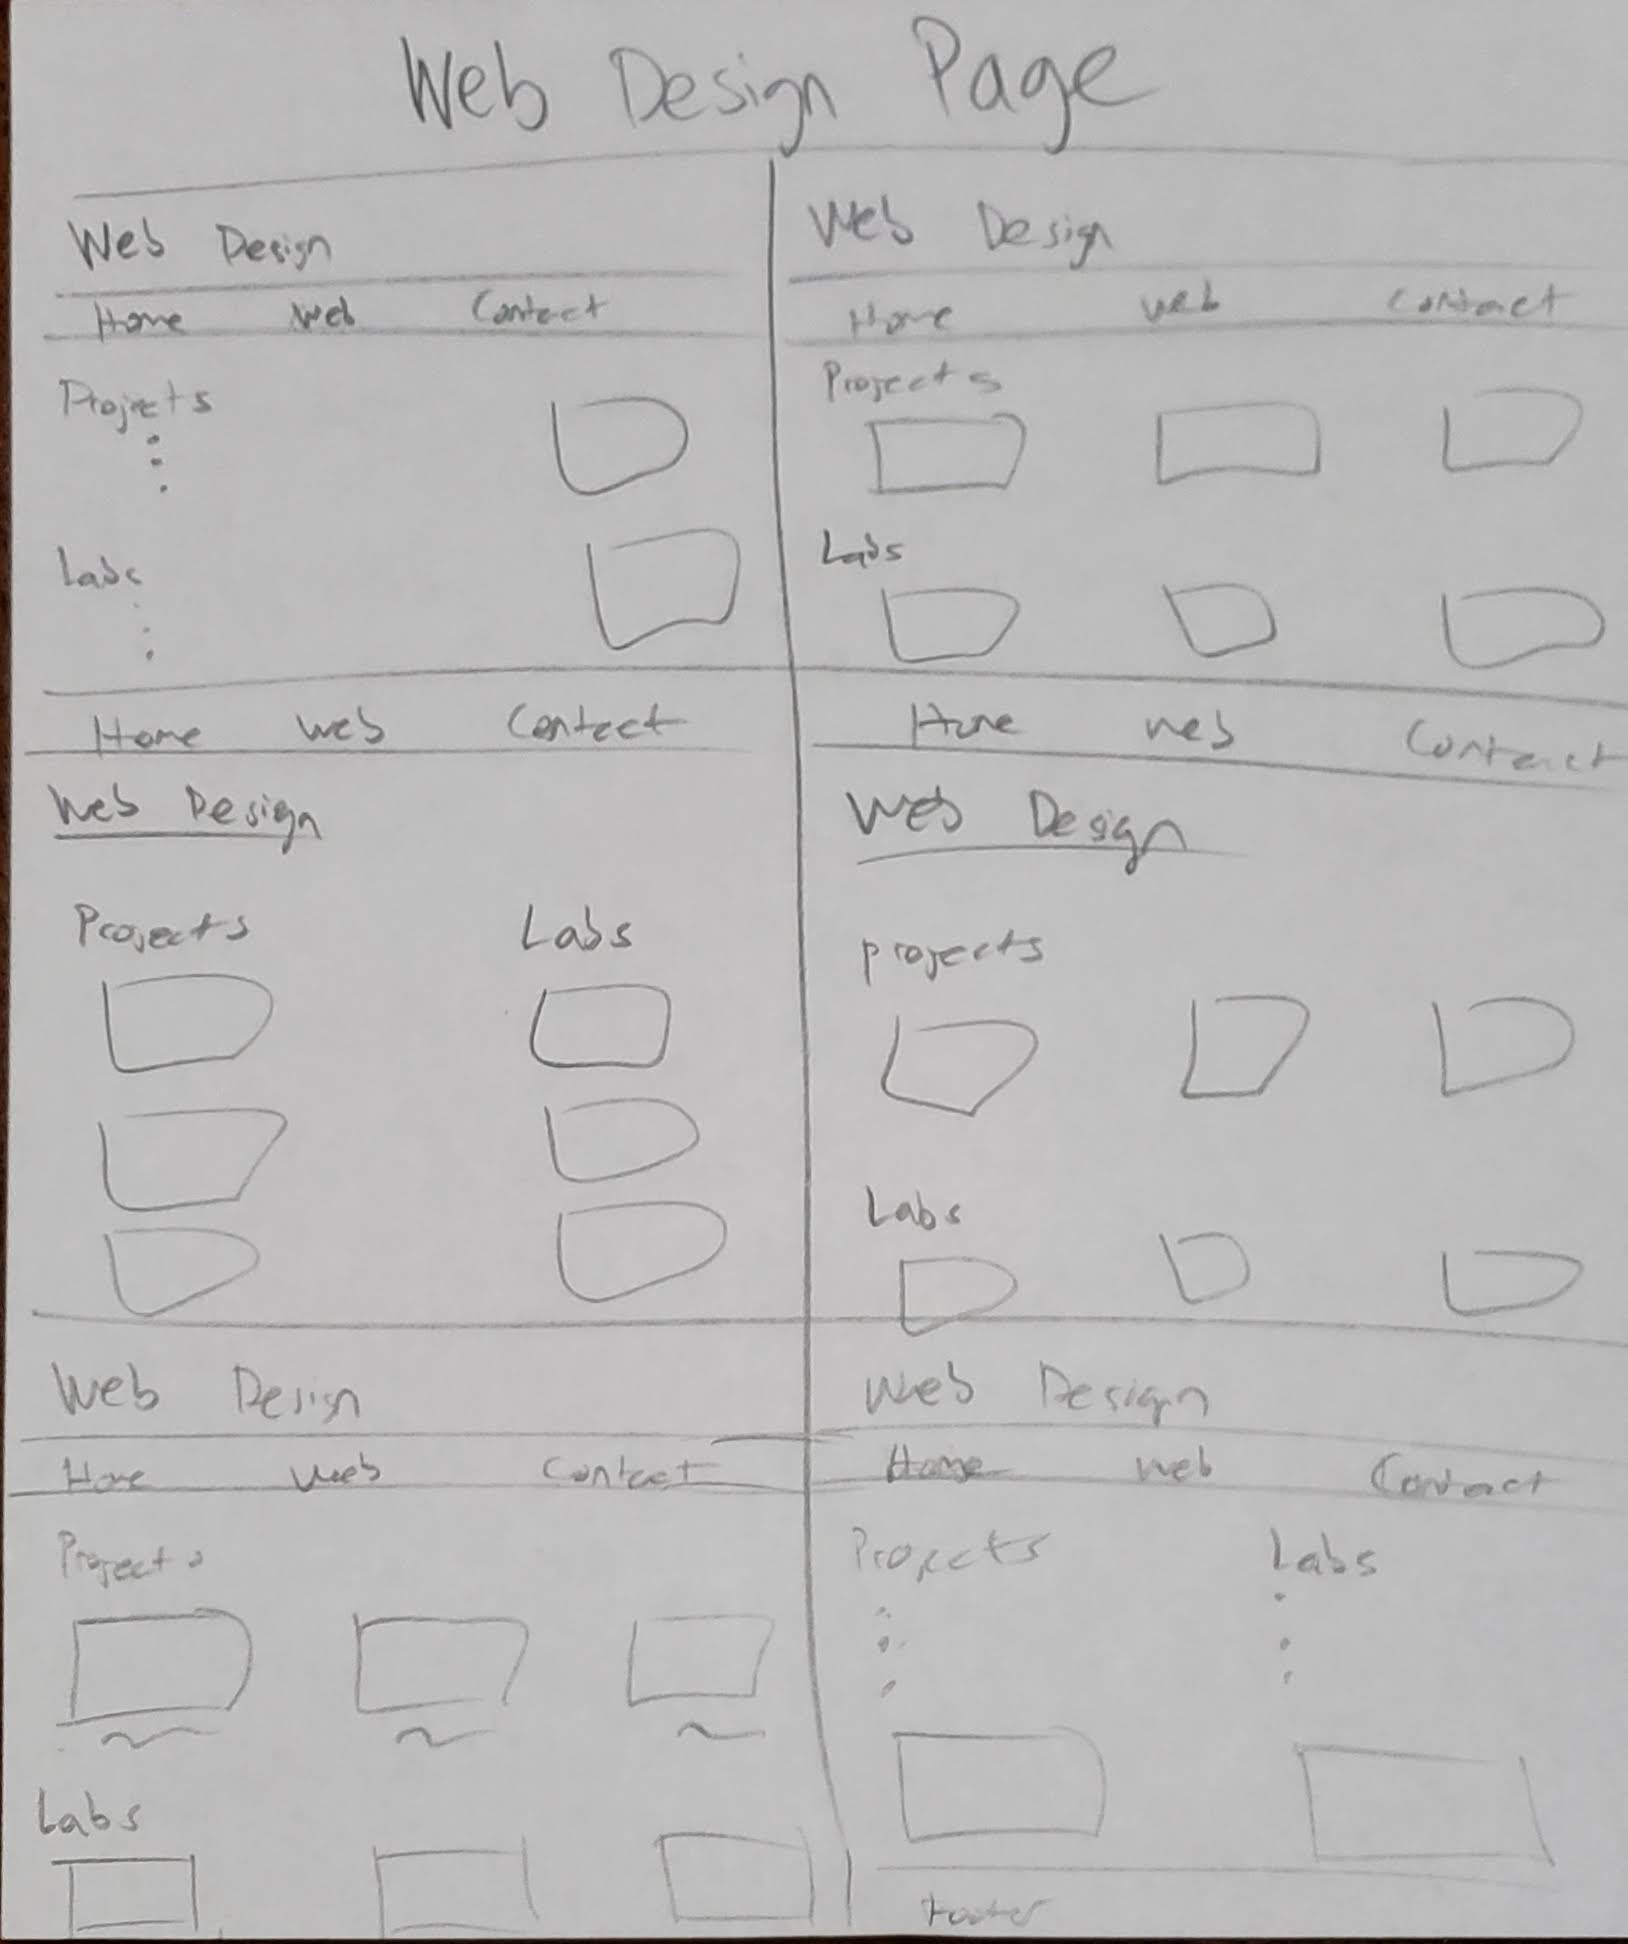 Web Design Page
Web Design
Home Web Contact
Projects
Labs
Web Design
Home web Contact
Projects
Labs
Home Web Contact
Web Design
Projects Labs
Home web Contact
Web Design
projects
Labs
Web Design
Home Web Contact
Projects
Labs
Web Design
Home web Contact
Projects Labs
Footer